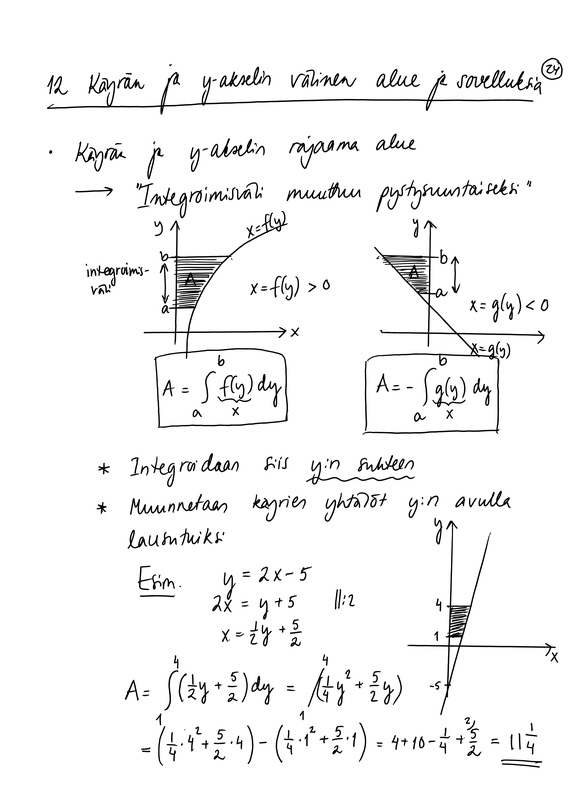 24
12 Käyrän ja y-akselin välinen alue ja sovelluksia
· Käyrän ja y-akselin rajaama alue
→ "Integroimisväli muuttuu pystysuuntaiseksi"
y x=f(y)
b
integroimis-
väli
A
a
x = f(y) > 0
x
y
b
A
a
x = g(y) < 0
x=g(y)
A = ∫_a^b f(y) dy
x
A = - ∫_a^b g(y) dy
x
* Integroidaan siis y:n suhteen
* Muunnetaan käyrien yhtälöt y:n avulla
lausutuiksi
Esim. y = 2x - 5
2x = y + 5 ||:2
x = 1/2 y + 5/2
y
4
1
x
-5
A = ∫_1^4 (1/2 y + 5/2) dy = /_1^4 (1/4 y² + 5/2 y)
= (1/4 · 4² + 5/2 · 4) - (1/4 · 1² + 5/2 · 1) = 4 + 10 - 1/4 + ²⁾5/2 = 11 1/4